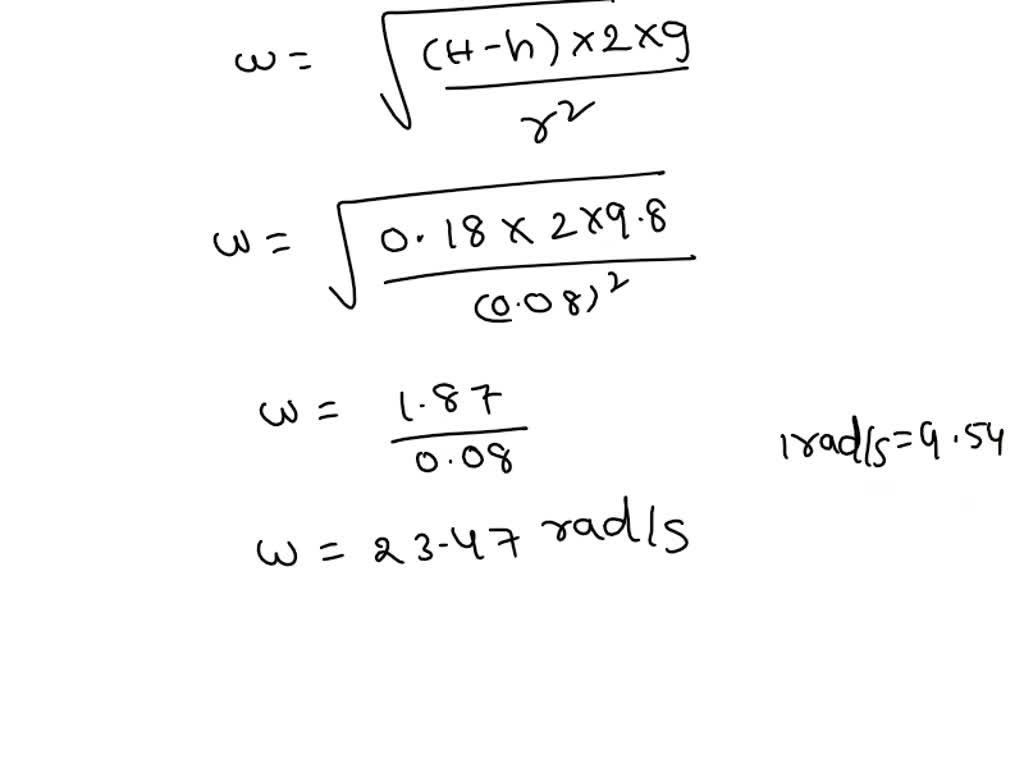 ω = √((H-h)×2×g / r²)
ω = √(0.18 × 2×9.8 / (0.08)²)
ω = 1.87 / 0.08
1rad/s=9.54
ω = 23.47 rad/s